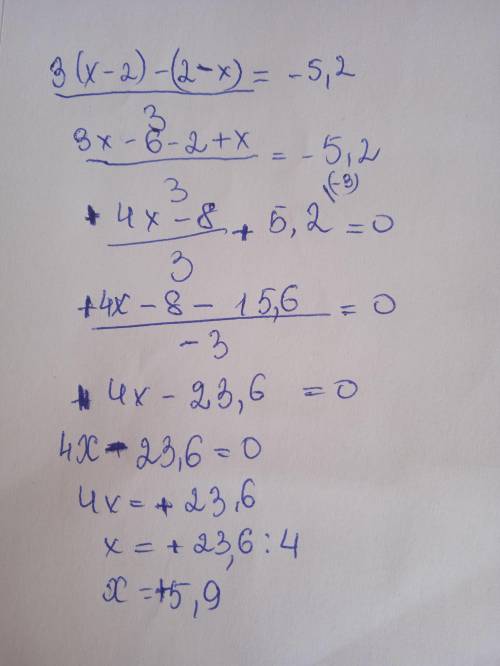 3(x-2)-(2-x) = -5,2
3
3x-6-2+x = -5,2
3
+4x-8 + 5,2 \(-3) = 0
3
+4x-8-15,6 = 0
-3
4x-23,6 = 0
4x-23,6=0
4x=+23,6
x=+23,6:4
x=+5,9